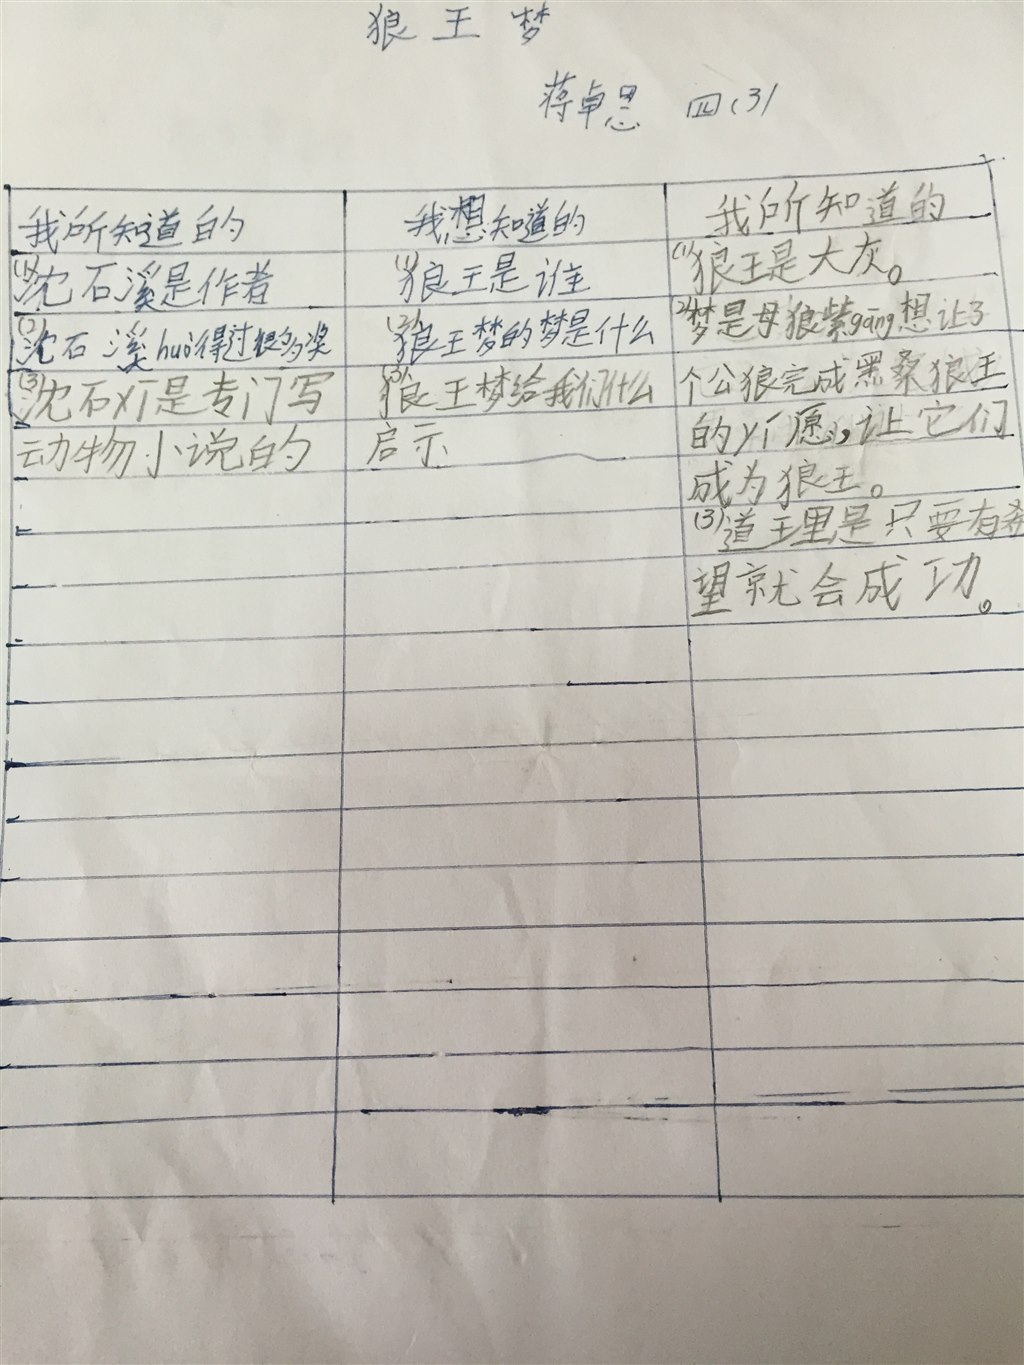 狼王梦
蒋卓恩 四(3)
我所知道的
(1)沈石溪是作者
(2)沈石溪huò得过很多奖
(3)沈石xī是专门写
动物小说的
我想知道的
(1)狼王是谁
(2)狼王梦的梦是什么
(3)狼王梦给我们什么
启示
我所知道的
(1)狼王是大灰。
(2)梦是母狼紫gāng想让3
个公狼完成黑桑狼王
的yí愿,让它们
成为狼王。
(3)道王里是只要有希
望就会成功。